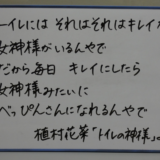 ーイレには それはそれはキレイな
女神様がいるんやで
だから毎日 キレイにしたら
女神様みたいに
べっぴんさんになれるんやで
植村花菜「トイレの神様」